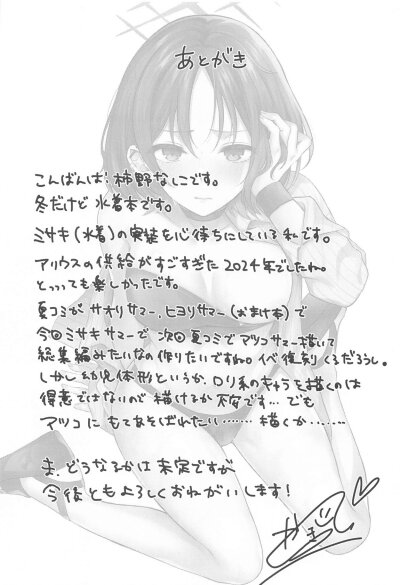 あとがき
こんばんは！柿野なしこです。
冬だけど水着本です。
ミサキ(水着)の実装を心待ちにしている私です。
アリウスの供給がすごすぎた2024年でしたね。
とっっても楽しかったです。
夏コミがサオリサマー、ヒヨリサマー(おまけ本)で
今回ミサキサマーで次回夏コミでアツコサマー描いて
総集編みたいなの作りたいですね。イベ復刻くるだろうし。
しかし幼児体形というか、ロリ系のキャラを描くのは
得意ではないので描けるか不安です…でも
アツコにもてあそばれたい……描くか……
ま、どうなるかは未定ですが
今後ともよろしくおねがいします！